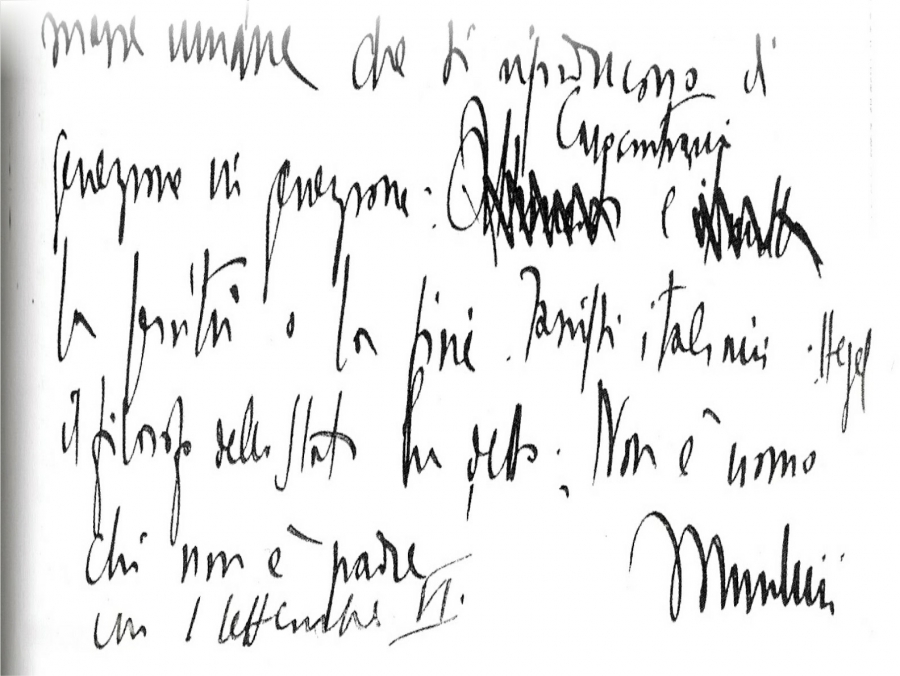 masse umane che si riproducono di
generazione in generazione. e
la servitù o la fine. Fascisti italiani: Hegel
il filosofo dello Stato ha detto: Non è uomo
chi non è padre
Mussolini
1 settembre VI.